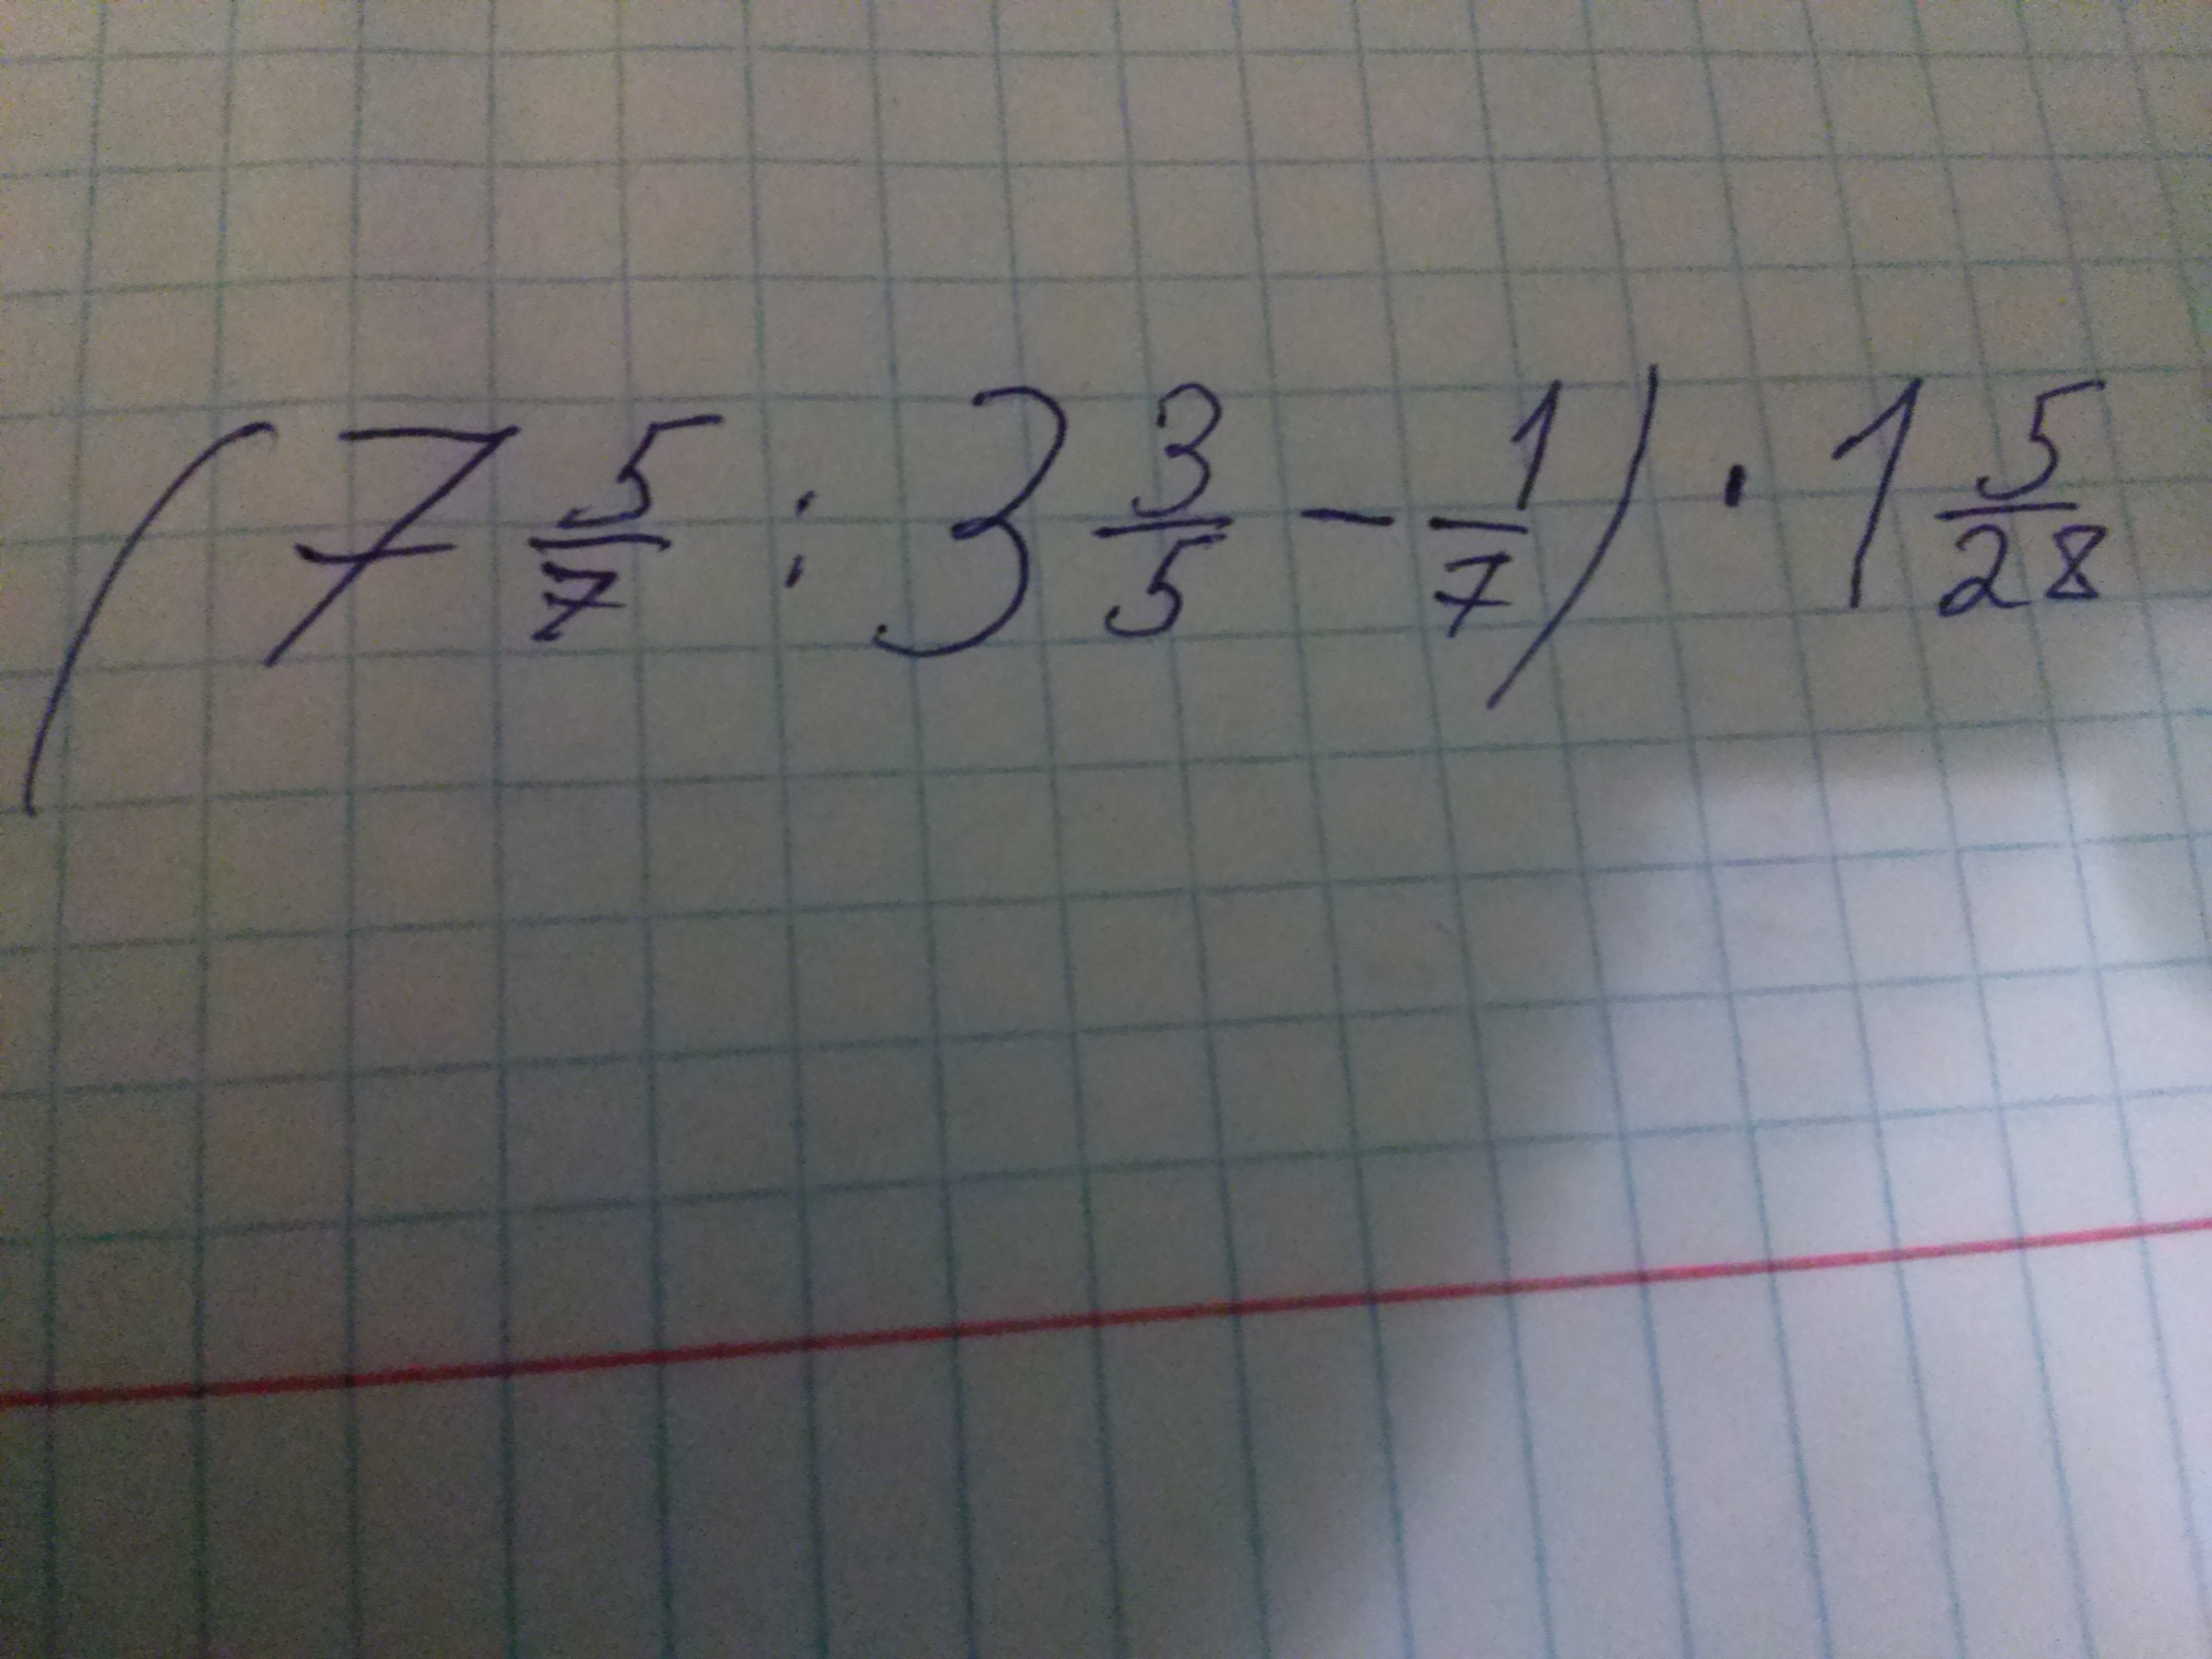 (7 5/7 : 3 3/5 - 1/7) · 1 5/28